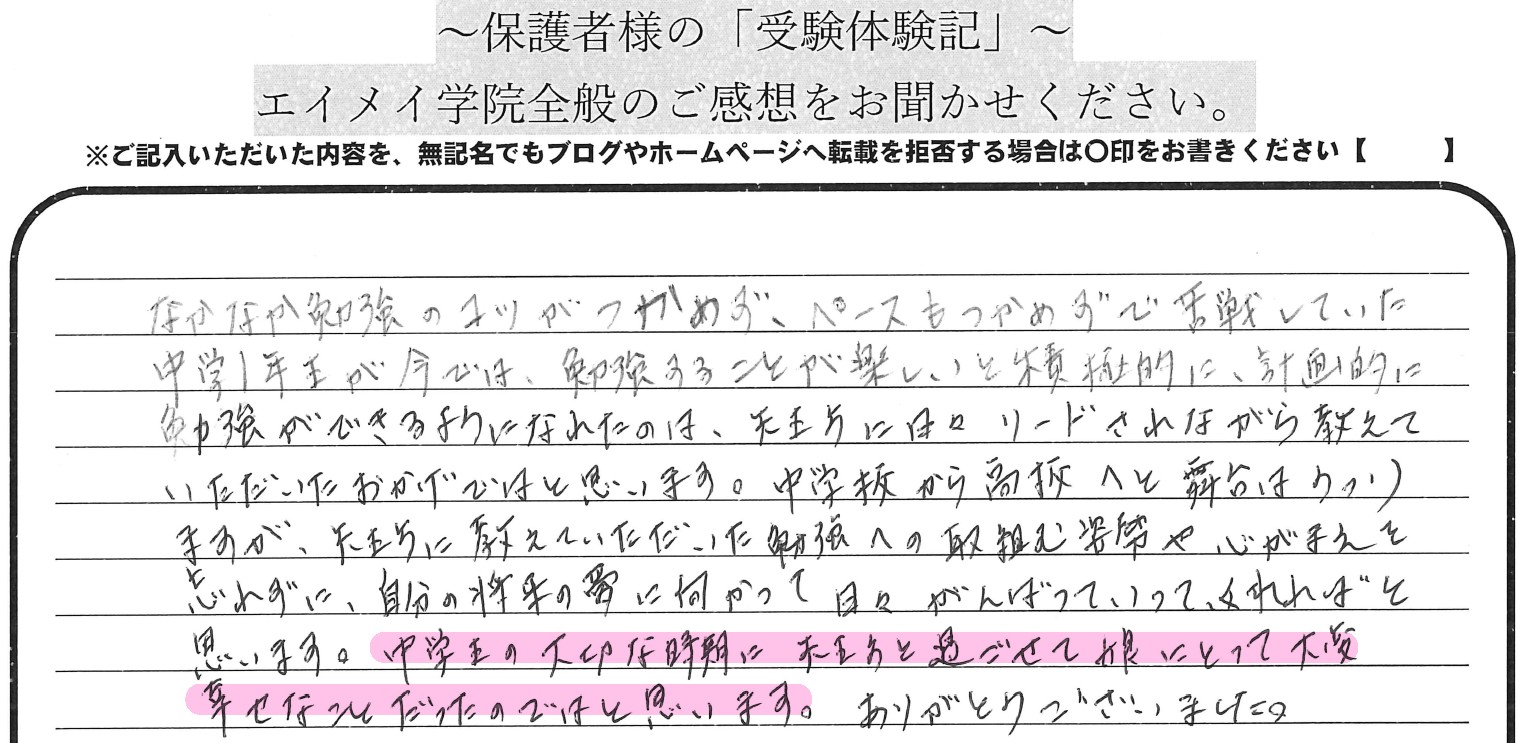 ～保護者様の「受験体験記」～
エイメイ学院全般のご感想をお聞かせください。
※ご記入いただいた内容を、無記名でもブログやホームページへ転載を拒否する場合は〇印をお書きください【　　】
なかなか勉強のコツがつかめず、ペースもつかめずで苦戦していた
中学1年生が今では、勉強することが楽しいと積極的に、計画的に
勉強ができるようになれたのは、先生方に日々リードされながら教えて
いただいたおかげではと思います。中学校から高校へと舞台はうつり
ますが、先生方に教えていただいた勉強への取組む姿勢や心がまえを
忘れずに、自分の将来の夢に向かって日々がんばっていってくれればと
思います。中学生の大切な時期に先生方と過ごせて娘にとって大変
幸せなことだったのではと思います。ありがとうございました。